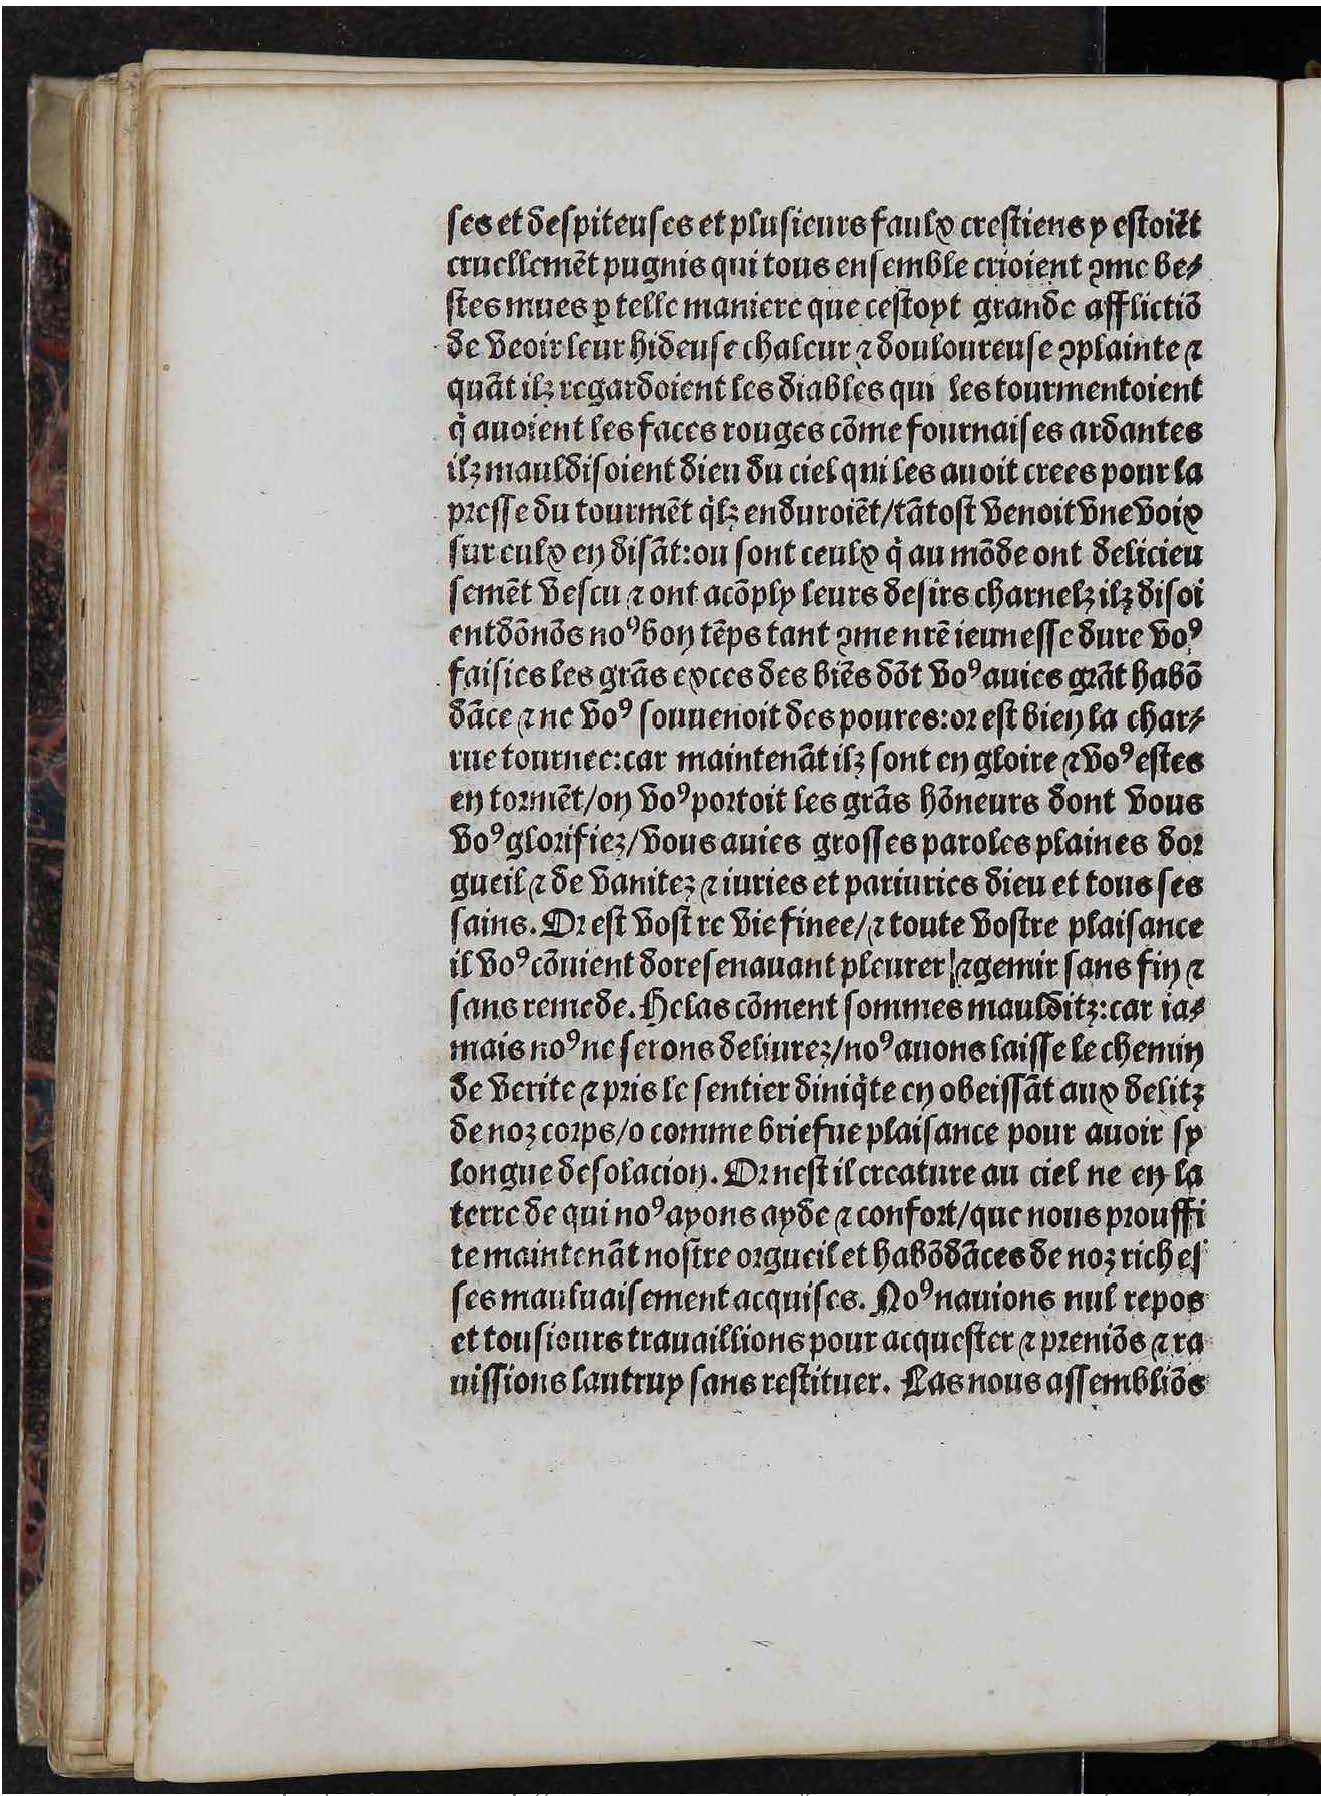 ses et despiteuses et plusieurs faulx crestiens y estoiẽt
cruellemẽt pugnis qui tous ensemble crioient ꝯme be⸗
stes mues ꝑ telle maniere que cestoyt grande afflictiõ
de veoir leur hideuse chaleur ⁊ douloureuse ꝯplainte ⁊
quãt ilz regardoient les diables qui les tourmentoient
q̃ auoient les faces rouges cõme fournaises ardantes
ilz mauldisoient dieu du ciel qui les auoit crees pour la
presse du tourmẽt q̃lz enduroiẽt/tãtost venoit vne voix
sur eulx en disãt:ou sont ceulx q̃ au mõde ont delicieu
semẽt vescu ⁊ ont acõply leurs desirs charnelz ilz disoi
ent dõnõs noꝰ bon tẽps tant ꝯme nr̃e ieunesse dure voꝰ
faisies les grãs exces des biẽs dõt voꝰ auies grãt habõ
dãce ⁊ ne voꝰ souuenoit des poures:or est bien la char⸗
rue tournee:car maintenãt ilz sont en gloire ⁊ voꝰ estes
en tormẽt/on voꝰ portoit les grãs hõneurs dont vous
voꝰ glorifiez/vous auies grosses paroles plaines dor
gueil ⁊ de vanitez ⁊ iuries et pariuries dieu et tous ses
sains. Or est vostre vie finee/⁊ toute vostre plaisance
il voꝰ cõuient doresenauant pleurer ⁊ gemir sans fin ⁊
sans remede. Helas cõment sommes mauldz̃itz:car ia⸗
mais noꝰ ne serons deliurez/noꝰ auons laisse le chemin
de verite ⁊ pris le sentier diniq̃te en obeissãt aux delitz
de noz corps/o comme briefue plaisance pour auoir sy
longue desolacion. Or nest il creature au ciel ne en la
terre de qui noꝰ ayons ayde ⁊ confort/que nous prouffi
te maintenãt nostre orgueil et habõdãces de noz riches
ses mauluaisement acquises. Noꝰ nauions nul repos
et tousiours trauaillions pour acquester ⁊ preniõs ⁊ ra
uissions lautruy sans restituer. Las nous assembliõs